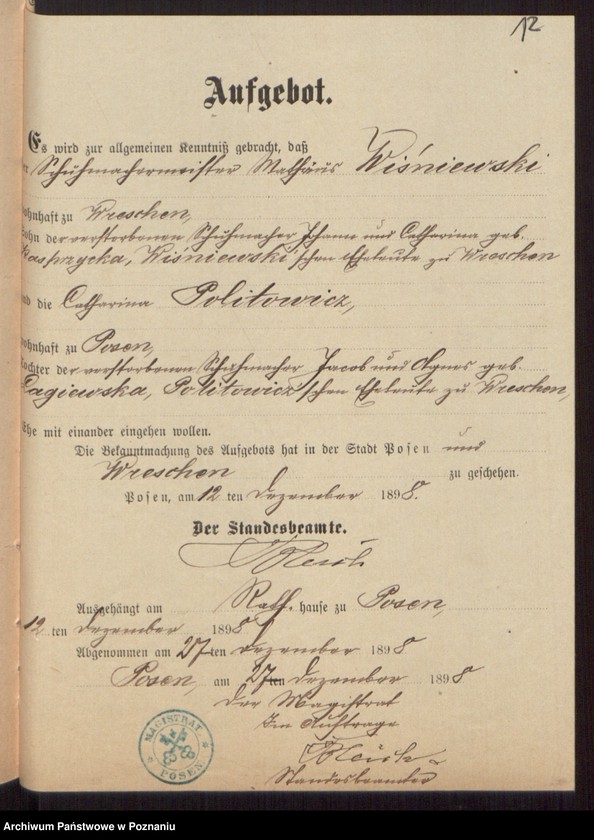 12
Aufgebot.
Es wird zur allgemeinen Kenntniß gebracht, daß
er Schuhmachermeister Mathäus Wiśniewski
ohnhaft zu Wreschen,
ohn der verstorbenen Schuhmacher Johann und Catharina geb.
Kasprzycka, Wiśniewski'schen Eheleute zu Wreschen
nd die Catharina Politowicz,
ohnhaft zu Posen,
ochter der verstorbenen Schuhmacher Jacob und Agnes geb.
Łagiewska, Politowicz'schen Eheleute zu Wreschen,
Ehe mit einander eingehen wollen.
Die Bekanntmachung des Aufgebots hat in der Stadt Posen und
Wreschen zu geschehen.
Posen, am 12 ten Dezember 1898.
Der Standesbeamte.
Ausgehängt am Rath hause zu Posen,
12 ten Dezember 1898
Abgenommen am 27 ten Dezember 1898
Posen, am 27 ten Dezember 1898
Der Magistrat
Im Auftrage
Standesbeamter
MAGISTRAT
POSEN
Archiwum Państwowe w Poznaniu